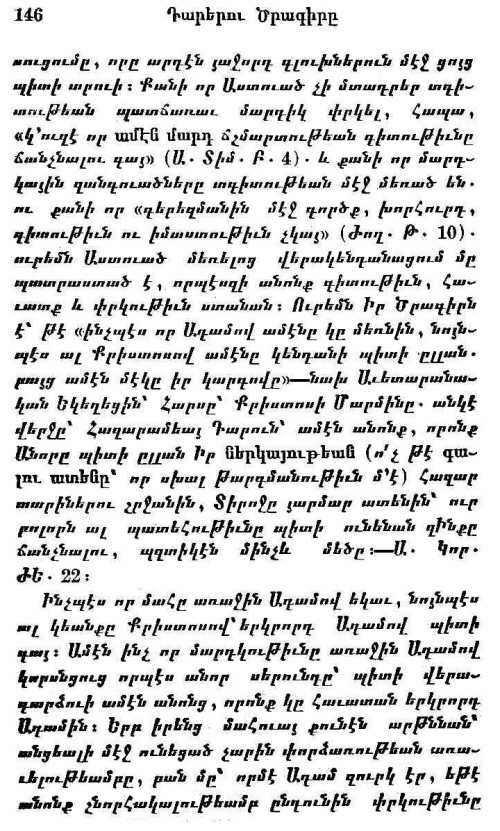 146 Դարերու Ծրագիրը
սուցումը, որը արդէն յաջորդ գլուխներուն մէջ ցոյց
պիտի տրուի: Քանի որ Աստուած չի մտադրեր տգի-
տութեան պատճառաւ մարդիկ փրկել, հապա,
«կ՚ուզէ որ ամէն մարդ ճշմարտութեան գիտութիւնը
ճանչնալու գայ» (Ա. Տիմ. Բ. 4). և քանի որ մարդ-
կային զանգուածները տգիտութեան մէջ մեռած են.
ու քանի որ «գերեզմանին մէջ գործք, խորհուրդ,
գիտութիւն ու իմաստութիւն չկայ» (Ժող. Թ. 10).
ուրեմն Աստուած մեռելոց վերակենդանացում մը
պատրաստած է, որպէսզի անոնք գիտութիւն, հա-
ւատք և փրկութիւն ստանան: Ուրեմն Իր Ծրագիրն
է՝ թէ «ինչպէս որ Ադամով ամէնը կը մեռնին, նոյն-
պէս ալ Քրիստոսով ամէնը կենդանի պիտի ըլլան.
բայց ամէն մէկը իր կարգովը»—նախ Աւետարանա-
կան Եկեղեցին՝ Հարսը՝ Քրիստոսի Մարմինը. անկէ
վերջը՝ Հազարամեայ Դարուն՝ ամէն անոնք, որոնք
Անորը պիտի ըլլան Իր ներկայութեան (ո՛չ թէ գա-
լու ատենը՝ որ սխալ թարգմանութիւն մ՚է) հազար
տարիներու շրջանին, Տիրոջը յարմար ատենին՝ ուր
բոլորն ալ պատեհութիւնը պիտի ունենան զԻնքը
ճանչնալու, պզտիկէն մինչև մեծը:—Ա. Կոր.
ԺԵ. 22:
Ինչպէս որ մահը առաջին Ադամով եկաւ, նոյնպէս
ալ կեանքը Քրիստոսով՝ երկրորդ Ադամով պիտի
գայ: Ամէն ինչ որ մարդկութիւնը առաջին Ադամով
կորսնցուց որպէս անոր սերունդը՝ պիտի վերա-
դարձուի ամէն անոնց, որոնք կը հաւատան երկրորդ
Ադամին: Երբ իրենց մահուայ քունէն արթննան՝
անցեալի մէջ ունեցած չարին փորձառութեան առա-
ւելութեամբը, բան մը՝ որմէ Ադամ զուրկ էր, եթէ
անոնք շնորհակալութեամբ ընդունին փրկութիւնը